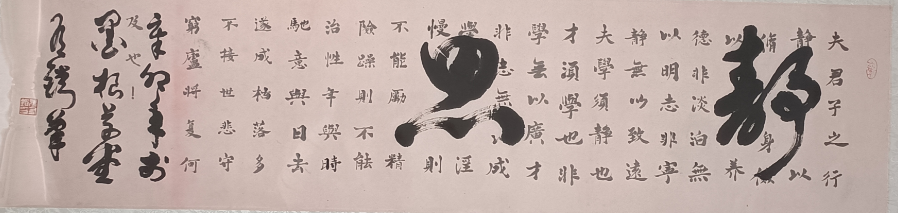 夫君子之行
静以
身
静
以養
德非淡泊無
以明志非寧
静無以致遠
夫學須静也
才須學也非
學無以廣才
非志無成
學淫
慢則
不能勵精
險躁則不能
治性年與時
馳意與日去
遂成枯落多
不接世悲守
窮廬將復何
及也
辛卯年於
墨根草堂